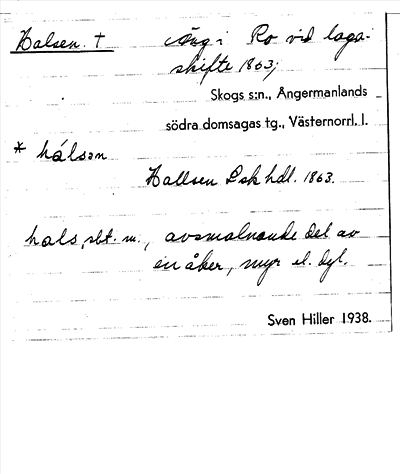 Halsen. † äng i Ro vid laga-
skifte 1863;
Skogs s:n., Ångermanlands
södra domsagas tg., Västernorrl. l.
* hálsən
Hallsen Lsk hdl. 1863.
hals, sbt. m., avsmalnande del av
en åker, myr el. dyl.
Sven Hiller 1938.